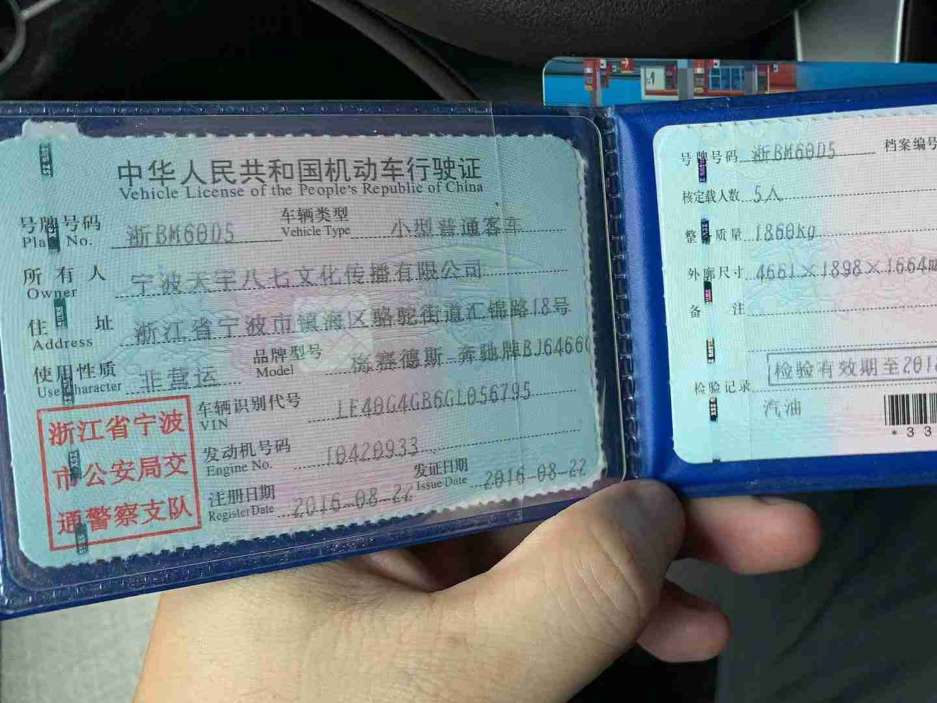 中华人民共和国机动车行驶证
Vehicle License of the People's Republic of China
号牌号码 浙BM60D5 车辆类型 小型普通客车
Plate No. Vehicle Type
所有人 宁波天宇八七文化传播有限公司
Owner
住址 浙江省宁波市镇海区骆驼街道汇锦路18号
Address
使用性质 非营运 品牌型号 梅赛德斯-奔驰牌BJ6466
Use Character Model
车辆识别代号 LE40G4GB6GL056795
VIN
发动机号码 10420933
Engine No.
注册日期 2016-08-22 发证日期 2016-08-22
Register Date Issue Date
浙江省宁波
市公安局交
通警察支队
号牌号码 浙BM60D5 档案编号
核定载人数 5人
整备质量 1860kg
外廓尺寸 4661×1898×1664
备注
检验有效期至201
检验记录
汽油
*33